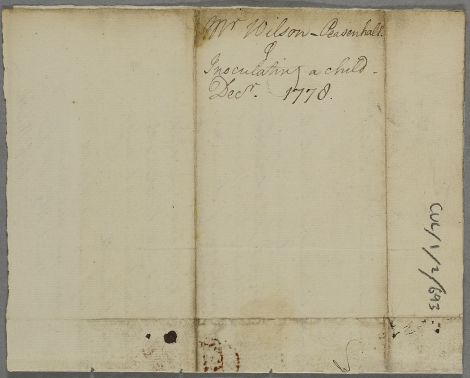 Mr Wilson - Peasenhall.
Inoculating a child -
Decr. 1778.
CUL/1/2/693